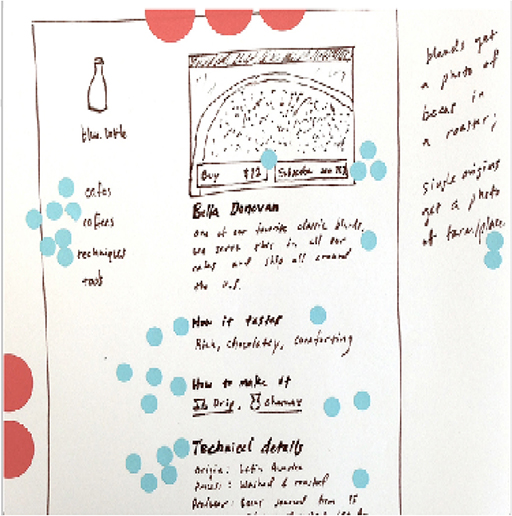 blue bottle
cafes
coffees
techniques
tools
Buy $12
Subscribe
Bella Donovan
one of our favorite classic blends,
we serve this in all our
cafes and ship all around
the U.S.
How it tastes
Rich, chocolatey, comforting
How to make it
Drip, Chemex
Technical details
Origin: Latin America
Process: Washed & roasted
Producer: Beans sourced from 15
blends get
a photo of
beans in
a roaster;
single origins
get a photo
of farm/place.